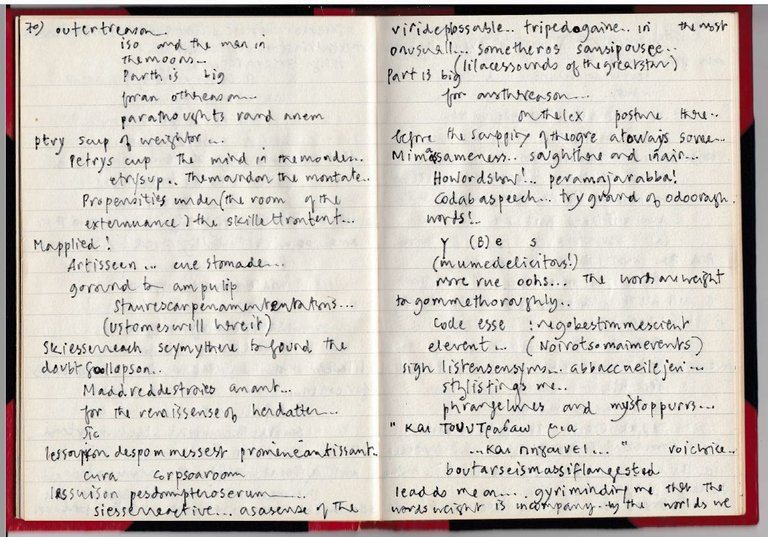 70) outerreason
iso and the men in
themoons...
Parth is big
foran othereason...
parathoughts rand anem
ptry scup of weightor...
Petrys cup the mind in themonden..
etrysup.. themaurdon the montate..
Propensities under (the room of the
extermuance) the skilletfrontent...
Mapplied!
Artisseen... eue stomade...
gorarend to ampulip
staurescarpenamententatams...
(ustomeswill hereit)
skiesserreach scymythere to found the
doubt gollopson..
Maddreddestroies anant...
for the renaissense of herdatten...
sic
despommessest promeneantissant..
cura corpsoaroom
lessuison pesdompteroserum......
siesserreactive... asasense of the
viridepossable.. tripedogaine.. in the most
onusuall... sometheros sansipousee..
(lilacessounds of the greatstar)
Part is big
for anothereason...
on the lex posture there..
before the scuppity of theogre atoways some..
Mimassameness.. soughthere and inair...
Howordshow!.. peramajarabba!
Codabaspeech... try guard of odooragh.
words!..
y (B) e s
(mumedelicitous!)
more rue oohs... the words are weight
to gommethoroughly..
code esse : negobestimmescient
elevent... (Noirotsomaimevents)
sign listensensyms... abbaccueilejeu...
stylistings me..
phrangelunes and mystoppurrs...
" και τουντραβαω μια
...και πηγαινει... " voichrice..
boutarseismassiflangested
leaddo mean.... gyriminding me that the
wordsweight is incompany.. by the worlds we